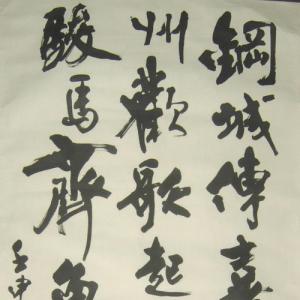 鋼城傳喜
州歡歌起
駿馬齊
壬申